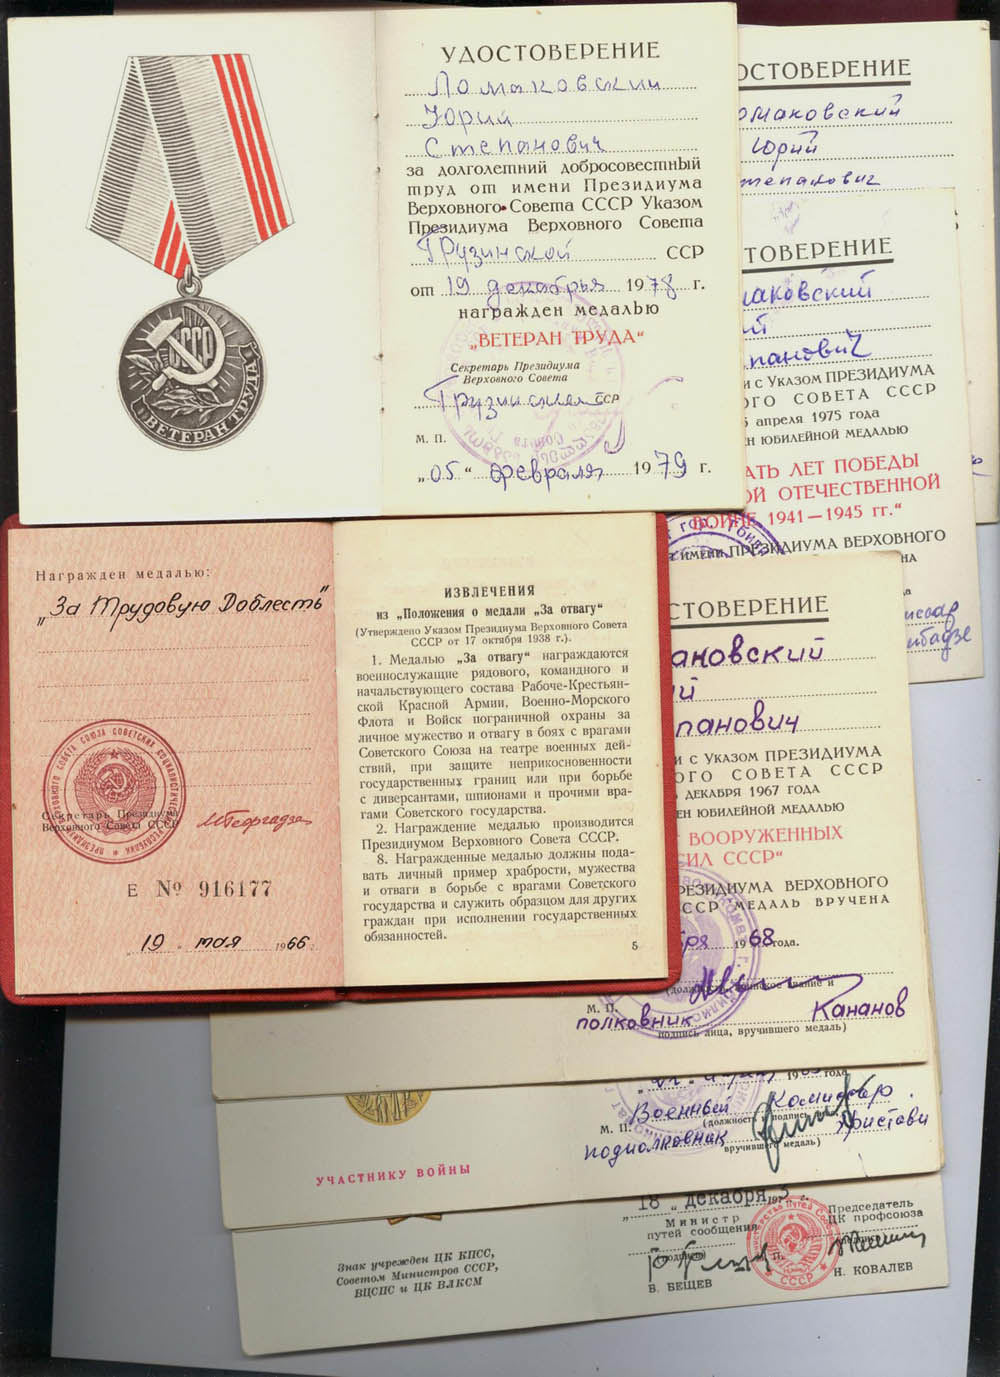 УДОСТОВЕРЕНИЕ
Ломаковский
Юрий
Степанович
за долголетний добросовестный
труд от имени Президиума
Верховного Совета СССР Указом
Президиума Верховного Совета
Грузинской ССР
от 19 декабря 1978 г.
награжден медалью
„ВЕТЕРАН ТРУДА“
Секретарь Президиума
Верховного Совета
Грузинской ССР
М. П.
„05“ февраля 1979 г.
СССР
ВЕТЕРАН ТРУДА
ОСТОВЕРЕНИЕ
омаковский
Юрий
тепанович
СТОВЕРЕНИЕ
маковский
ий
панович
и с Указом ПРЕЗИДИУМА
ОГО СОВЕТА СССР
5 апреля 1975 года
ЕН ЮБИЛЕЙНОЙ МЕДАЛЬЮ
АТЬ ЛЕТ ПОБЕДЫ
ОЙ ОТЕЧЕСТВЕННОЙ
ВОЙНЕ 1941—1945 гг.“
ИМЕНИ ПРЕЗИДИУМА ВЕРХОВНОГО
ЕНА
Награжден медалью:
„За Трудовую Доблесть“
Секретарь Президиума
Верховного Совета СССР
МГеоргадзе
Е № 916177
„19“ мая 1966 г.
ИЗВЛЕЧЕНИЯ
из „Положения о медали „За отвагу“
(Утверждено Указом Президиума Верховного Совета
СССР от 17 октября 1938 г.).
1. Медалью „За отвагу“ награждаются
военнослужащие рядового, командного и
начальствующего состава Рабоче-Крестьян-
ской Красной Армии, Военно-Морского
Флота и Войск пограничной охраны за
личное мужество и отвагу в боях с врагами
Советского Союза на театре военных дей-
ствий, при защите неприкосновенности
государственных границ или при борьбе
с диверсантами, шпионами и прочими вра-
гами Советского государства.
2. Награждение медалью производится
Президиумом Верховного Совета СССР.
8. Награжденные медалью должны пода-
вать личный пример храбрости, мужества
и отваги в борьбе с врагами Советского
государства и служить образцом для других
граждан при исполнении государственных
обязанностей.
5
СТОВЕРЕНИЕ
ановский
ий
панович
и с Указом ПРЕЗИДИУМА
ГО СОВЕТА СССР
ДЕКАБРЯ 1967 ГОДА
ЕН ЮБИЛЕЙНОЙ МЕДАЛЬЮ
ВООРУЖЕННЫХ
СИЛ СССР“
РЕЗИДИУМА ВЕРХОВНОГО
СССР МЕДАЛЬ ВРУЧЕНА
бря 1968 года.
М. П.
полковник Кананов
подпись лица, вручившего медаль)
1965 года
Военный Комиссар
М. П. (должность и подпись
подполковник Христави
вручившего медаль)
УЧАСТНИКУ ВОЙНЫ
„18“ декабря 1973 г.
Министр
путей сообщения
Председатель
ЦК профсоюза
(подпись)
(подпись)
В. БЕЩЕВ
Н. КОВАЛЕВ
Знак учрежден ЦК КПСС,
Советом Министров СССР,
ВЦСПС и ЦК ВЛКСМ